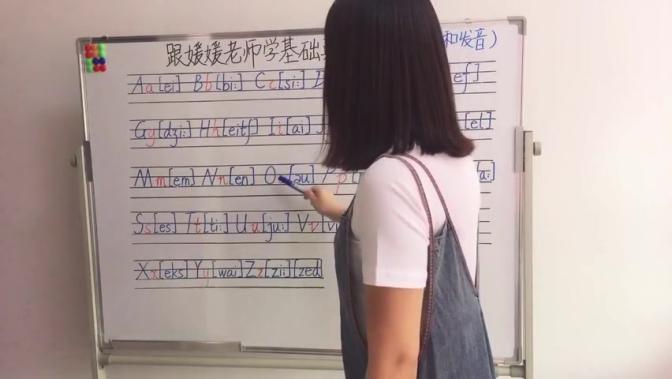 跟媛媛老师学基础 和发音)
Aa[ei] Bb[bi:] Cc[si:] D ef]
Gg[dʒi:] Hh[eitʃ] Ii[ai] J [el]
Mm[em] Nn[en] O [əu] Pp a:]
Ss[es] Tt[ti:] Uu[ju:] Vv[vi
Xx[eks] Yy[wai] Zz[zi:][zed]